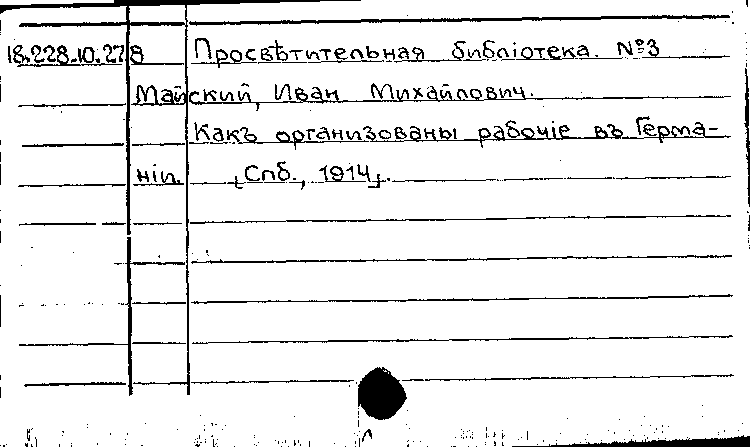 18.228.10.278 Просвѣтительная библіотека. №3
Майский, Иван Михайлович.
Какъ организованы рабочіе въ Герма-
ніи. [Спб., 1914].